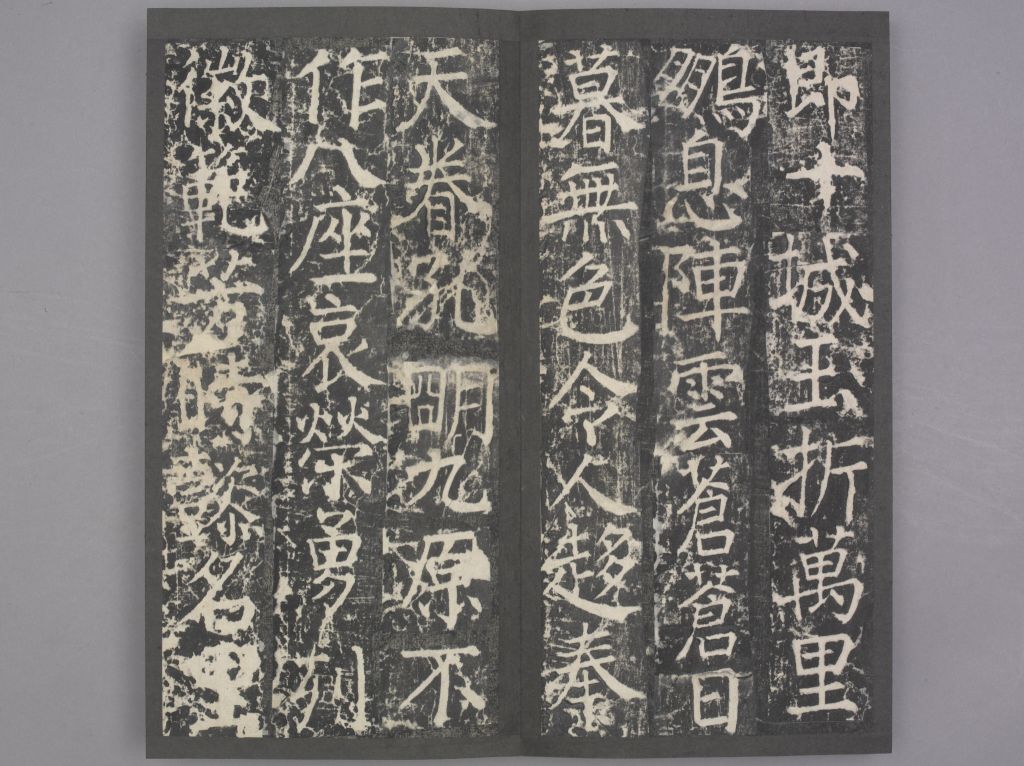 即十城玉折萬里
鵬息陣雲蒼蒼日
暮無色令人趍奉
天眷孔朙九源不
作八座哀榮勇列
徽範芳時名里